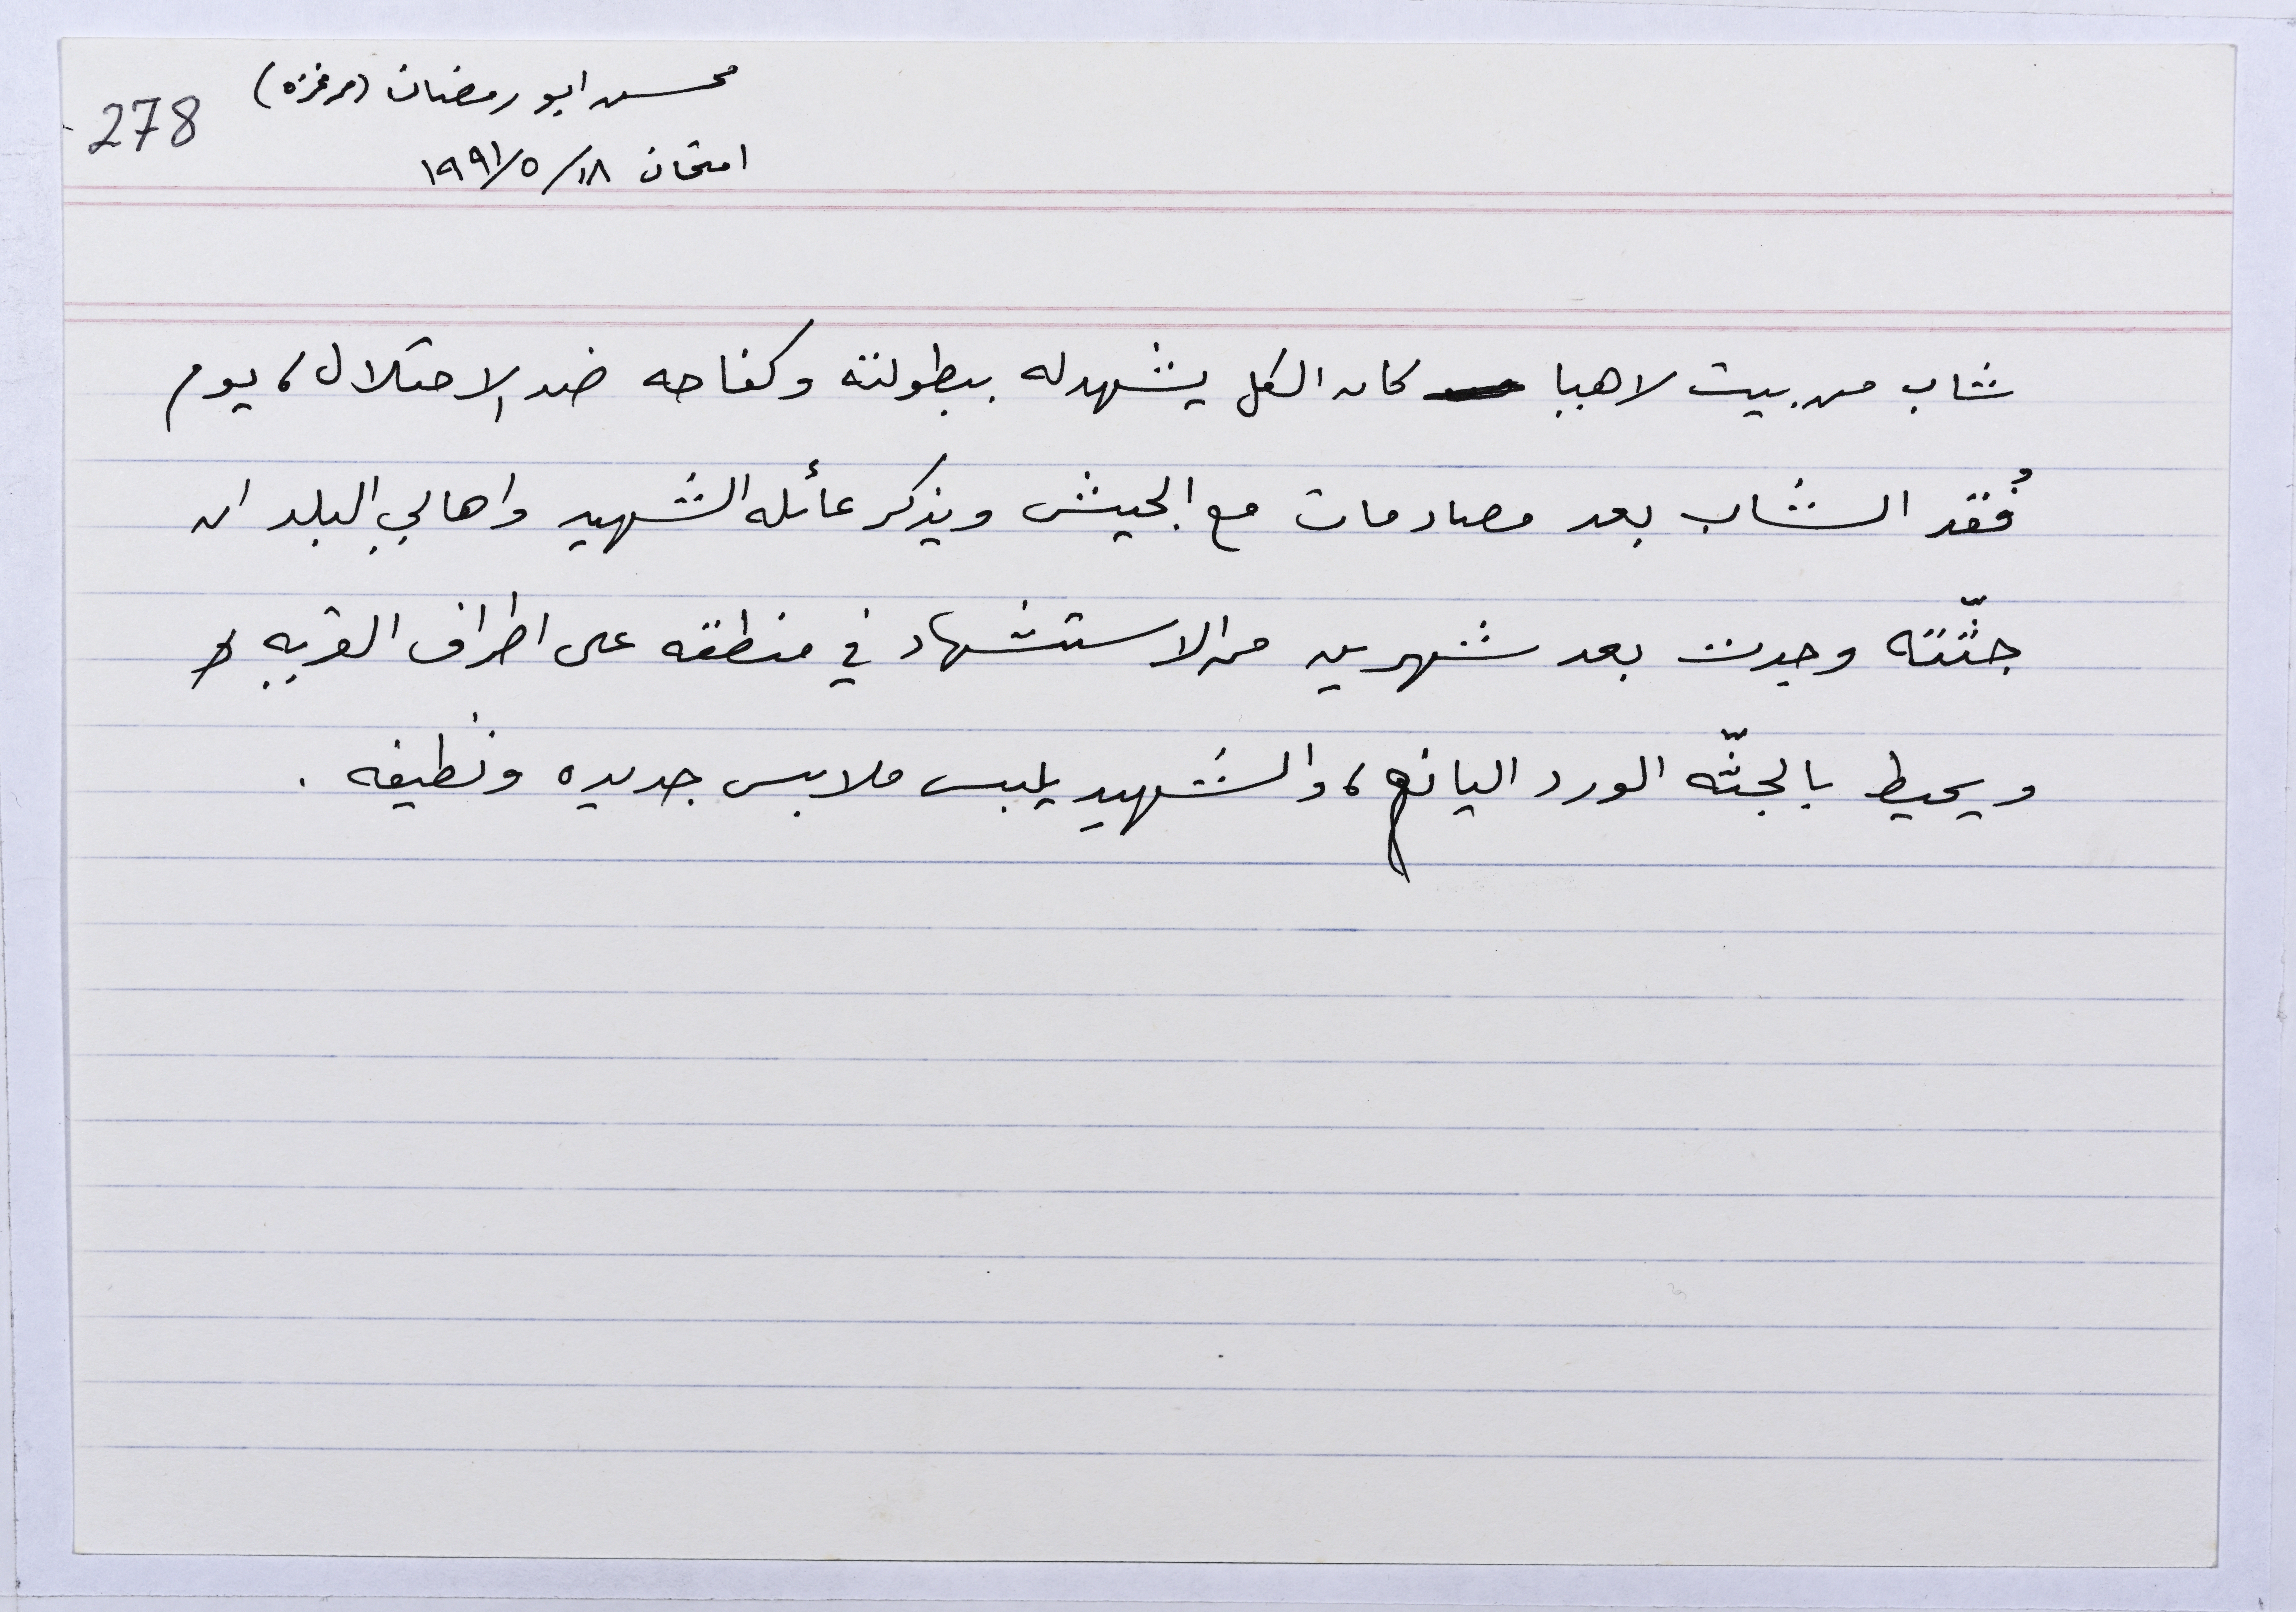 محسن ابو رمضان (من غزه)
278
امتحان ١٨/٥/١٩٩١
شاب من بيت لاهيا كان الكل يشهد له ببطولته وكفاحه ضد الاحتلال، يوم
فُقد الشاب بعد مصادمات مع الجيش ويذكر عائله الشهيد واهالي البلد ان
جثّته وجدت بعد شهرين من الاستشهاد في منطقه على اطراف القريه
ويحيط بالجثّه الورد اليانع، والشهيد يلبس ملابس جديده ونظيفه .